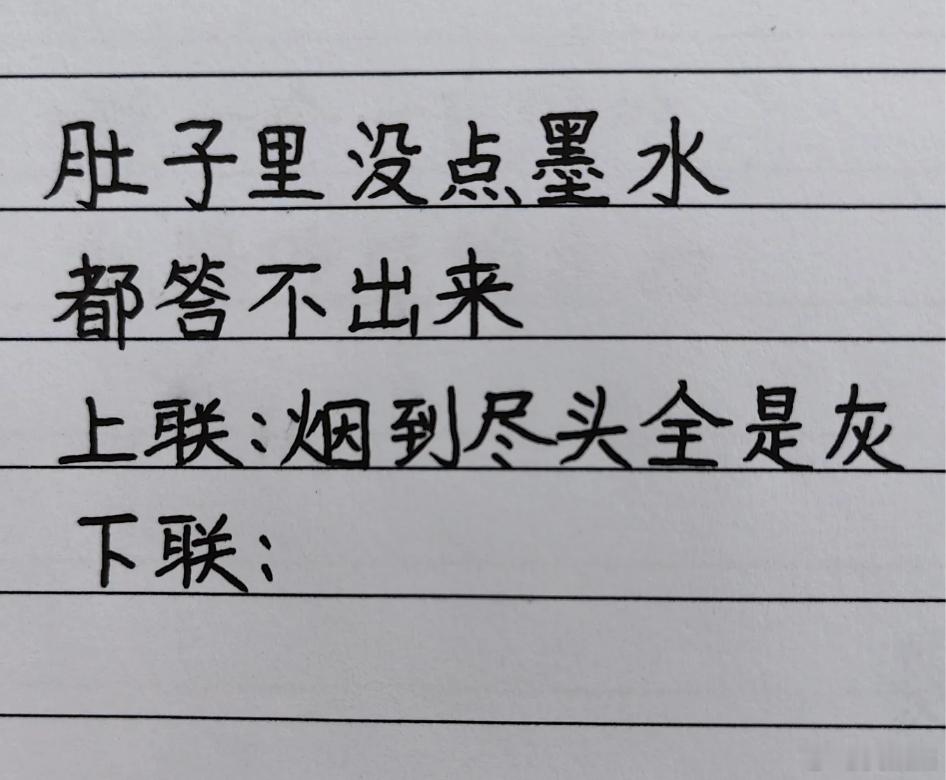 肚子里没点墨水
都答不出来
上联:烟到尽头全是灰
下联: